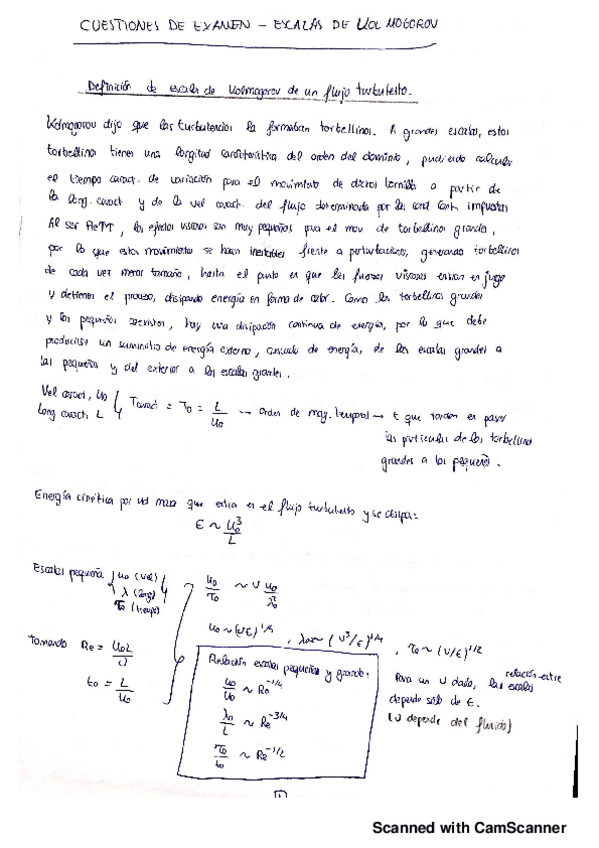 CUESTIONES DE EXAMEN - ESCALAS DE KOLMOGOROV
Definición de escala de Kolmogorov de un flujo turbulento.
Kolmogorov dijo que las turbulencias la formaban torbellinos. A grandes escalas, estos
torbellinos tienen una longitud característica del orden del dominio, pudiendo calcular
el tiempo caract. de variación para el movimiento de dichos a partir de
la long. caract y de la vel caract. del flujo determinada por las cond. Cont. impuestas
Al ser Re↑↑, los efectos viscosos son muy pequeños para el mov de torbellinos grandes,
por lo que estos movimientos se hacen inestables frente a perturbaciones, generando torbellinos
de cada vez menor tamaño, hasta el punto en que las fuerzas viscosas entran en juego
y detienen el proceso, disipando energía en forma de calor. Como los torbellinos grandes
y los pequeños coexisten, hay una disipación continua de energía, por lo que debe
producirse un suministro de energía externo, cascada de energía, de las escalas grandes a
las pequeñas y del exterior a las escalas grandes.
Vel caract, u₀
Long caract. L
Tcaract = T₀ = L/u₀ → Orden de mag. temporal → t que tardan en pasar
las partículas de los torbellinos
grandes a los pequeños.
Energía cinética por ud masa que entra en el flujo turbulento y se disipa:
ε ~ u₀³/L
Escalas pequeña u₀ (vel)
λ (long)
τ₀ (tiempo)
u₀/τ₀ ~ ν u₀/λ₀²
u₀ ~ (νε)^1/4 , λ₀ ~ (ν³/ε)^1/4 , τ₀ ~ (ν/ε)^1/2
Tomando Re = u₀L/ν
t₀ = L/u₀
Relación escalas pequeñas y grande:
u₀/u₀ ~ Re^-1/4
λ₀/L ~ Re^-3/4
τ₀/t₀ ~ Re^-1/2
Para un ν dado, la relación entre escalas
depende sólo de ε.
(ν depende del fluido)
1
Scanned with CamScanner